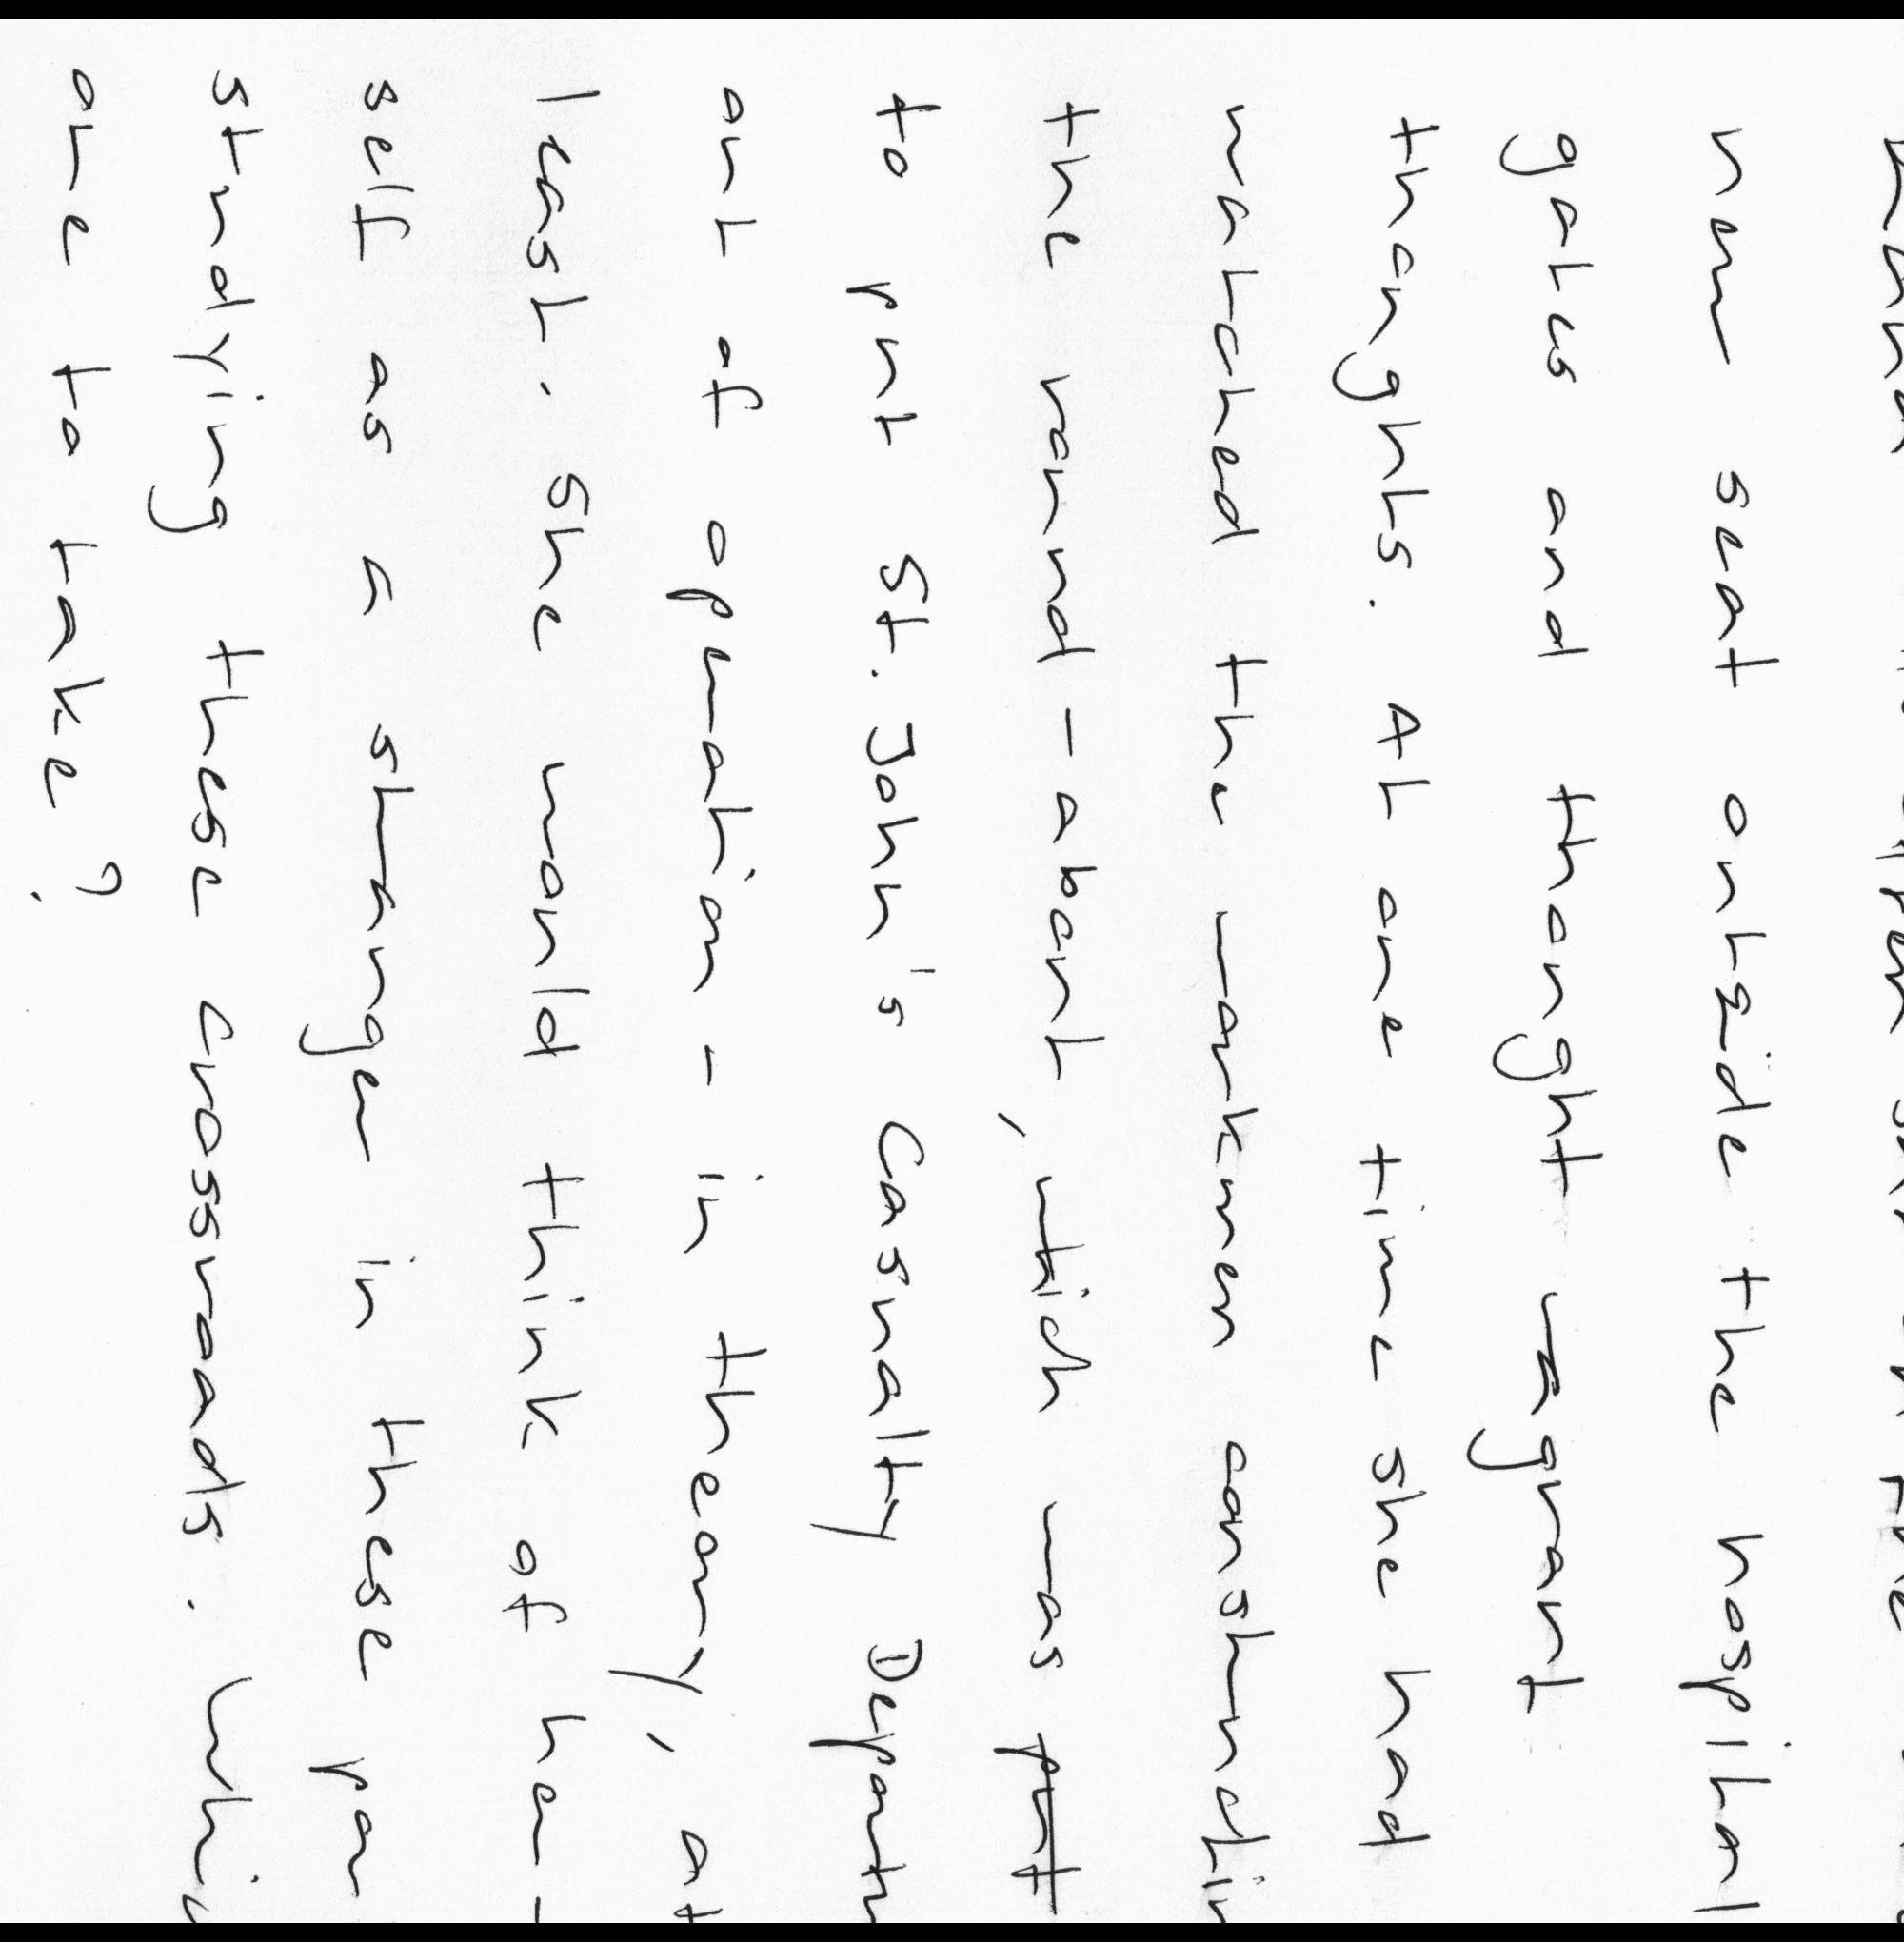 new seat outside the hospital
gates and thought vagrant
thoughts. At one time she had
watched the workmen constructin
the round-about, which was put
to put St. John's Casualty Depart
out of operation - in theory, at
least. She would think of her-
self as a stranger in these par
studying these crossroads. Whic
one to take?